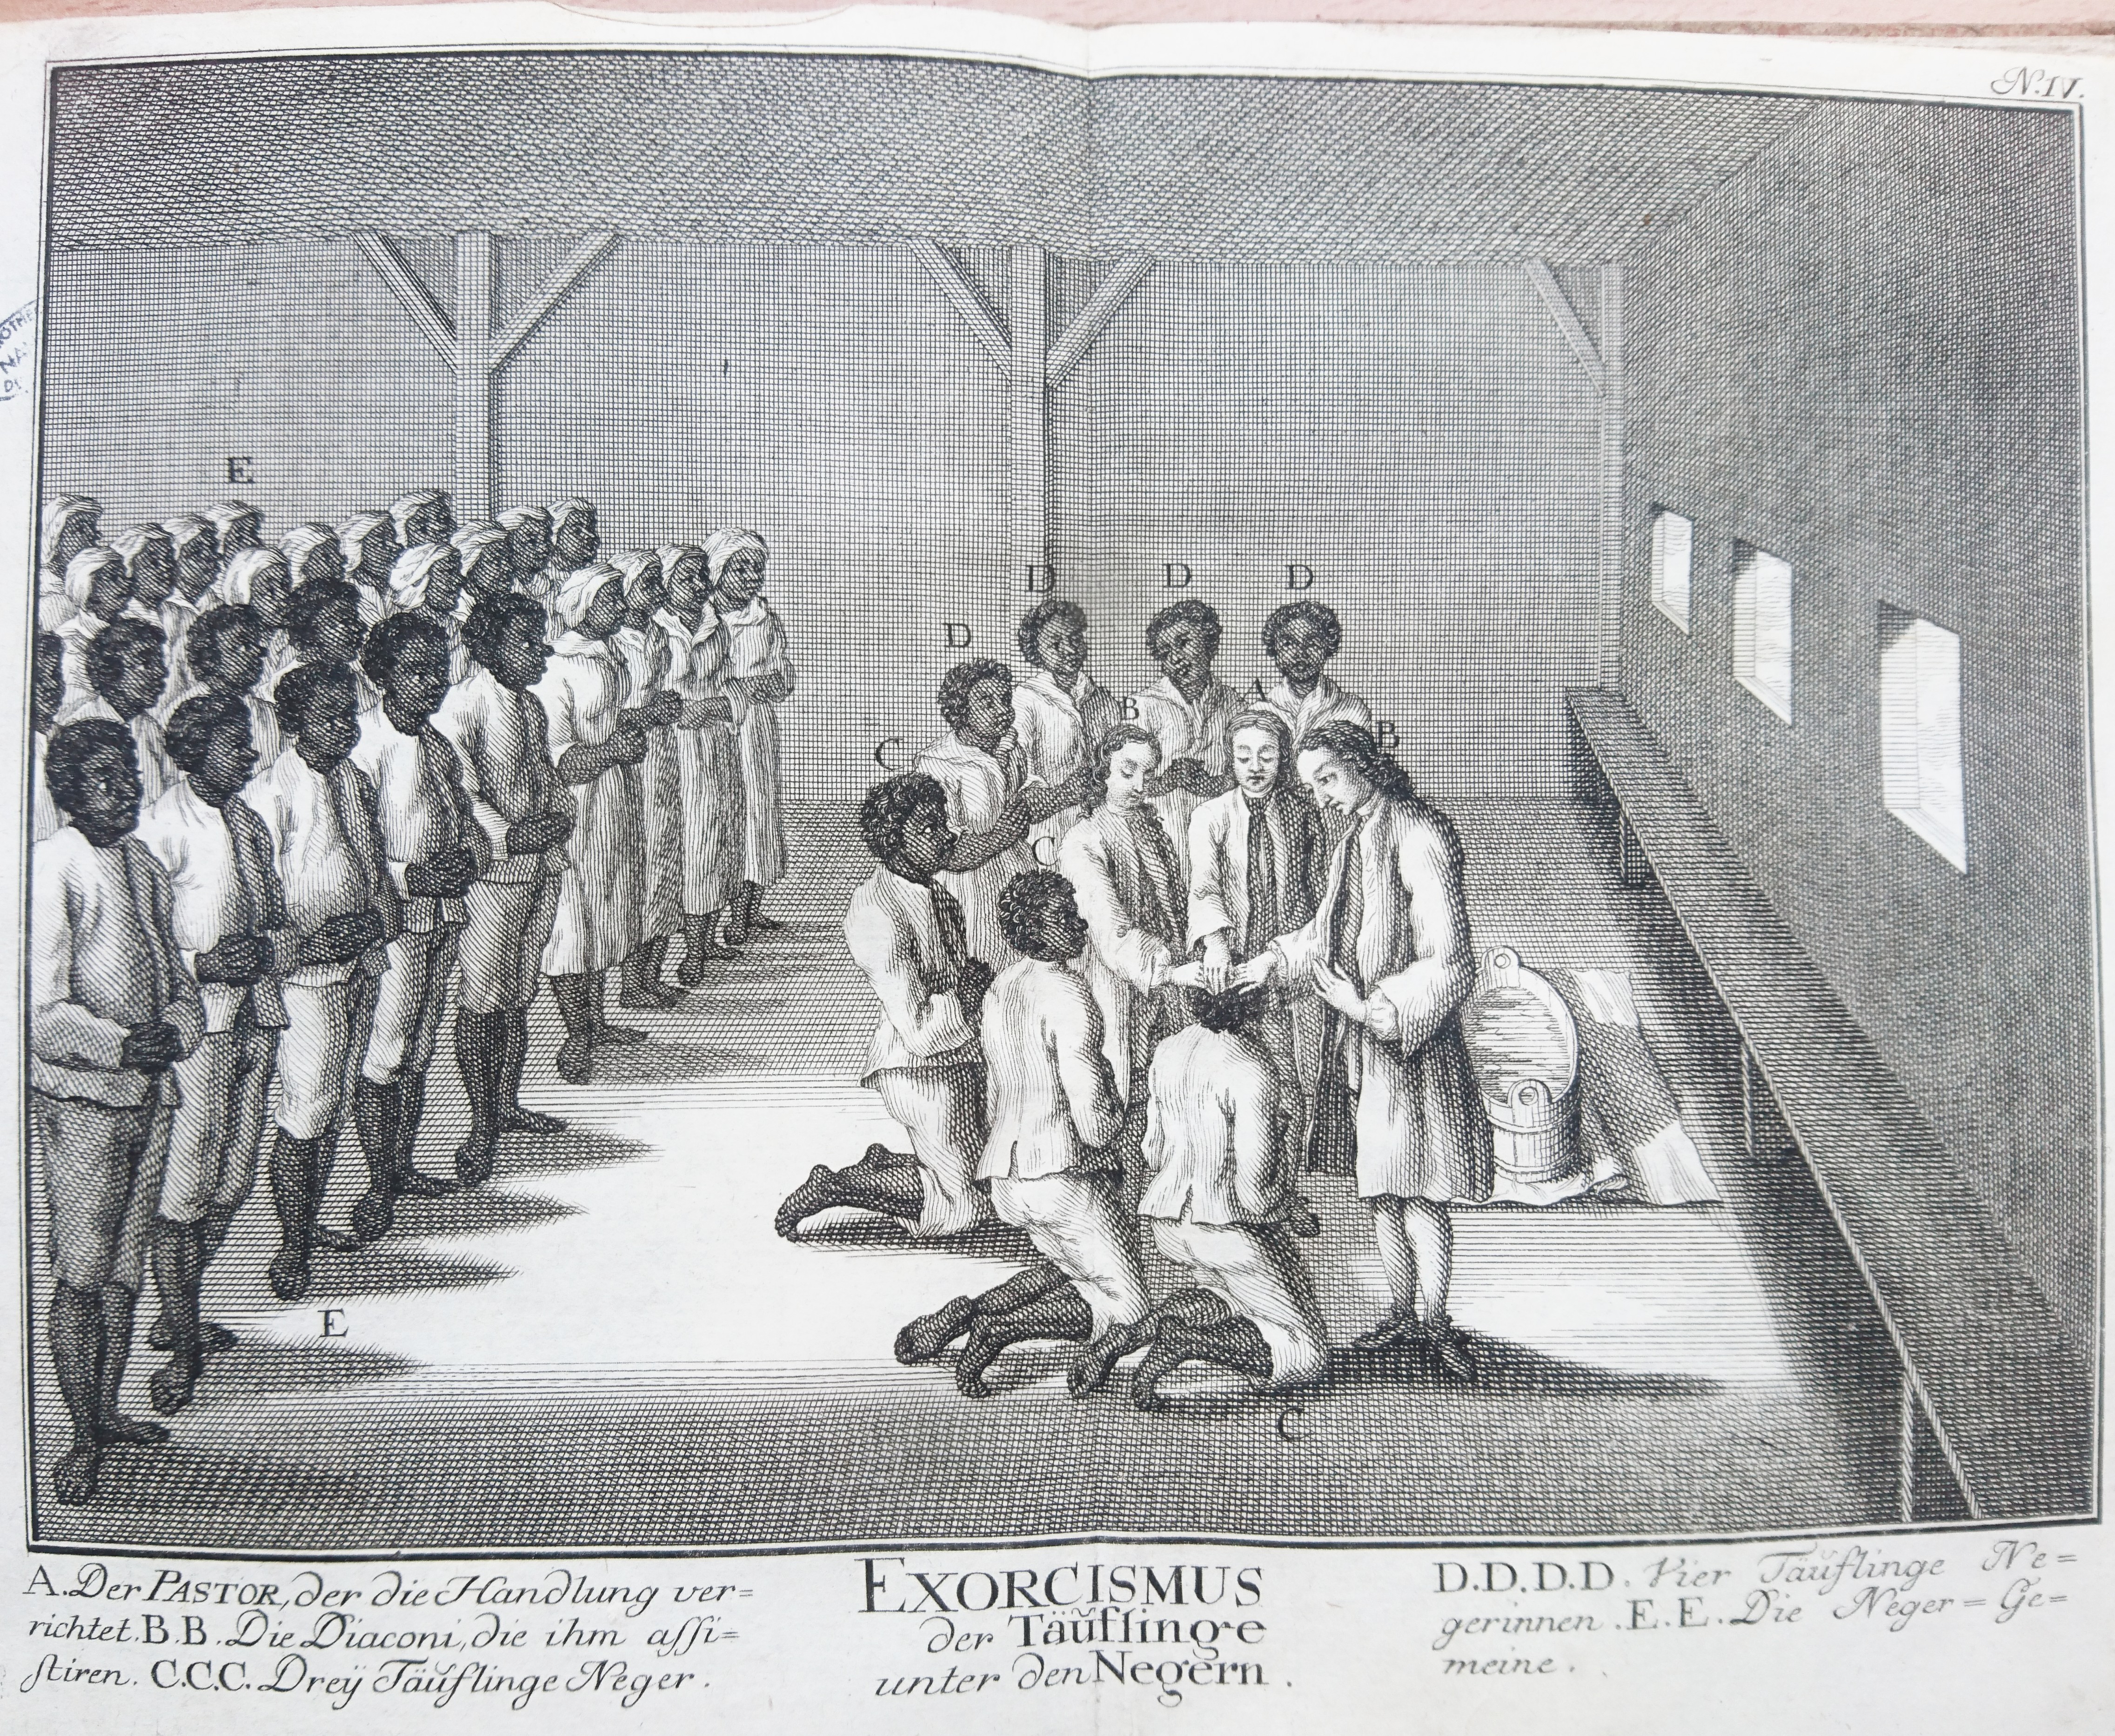 N. IV.
E
D
D
D
D
A
B
B
C
C
E
C
A. Der PASTOR, der die Handlung ver=
richtet. B. B. Die Diaconi, die ihm assi=
stiren. C.C.C. Dreÿ Täuflinge Neger.
EXORCISMUS
der Täuflinge
unter den Negern.
D.D.D.D. Vier Täuflinge Ne=
gerinnen. E. E. Die Neger=Ge=
meine.